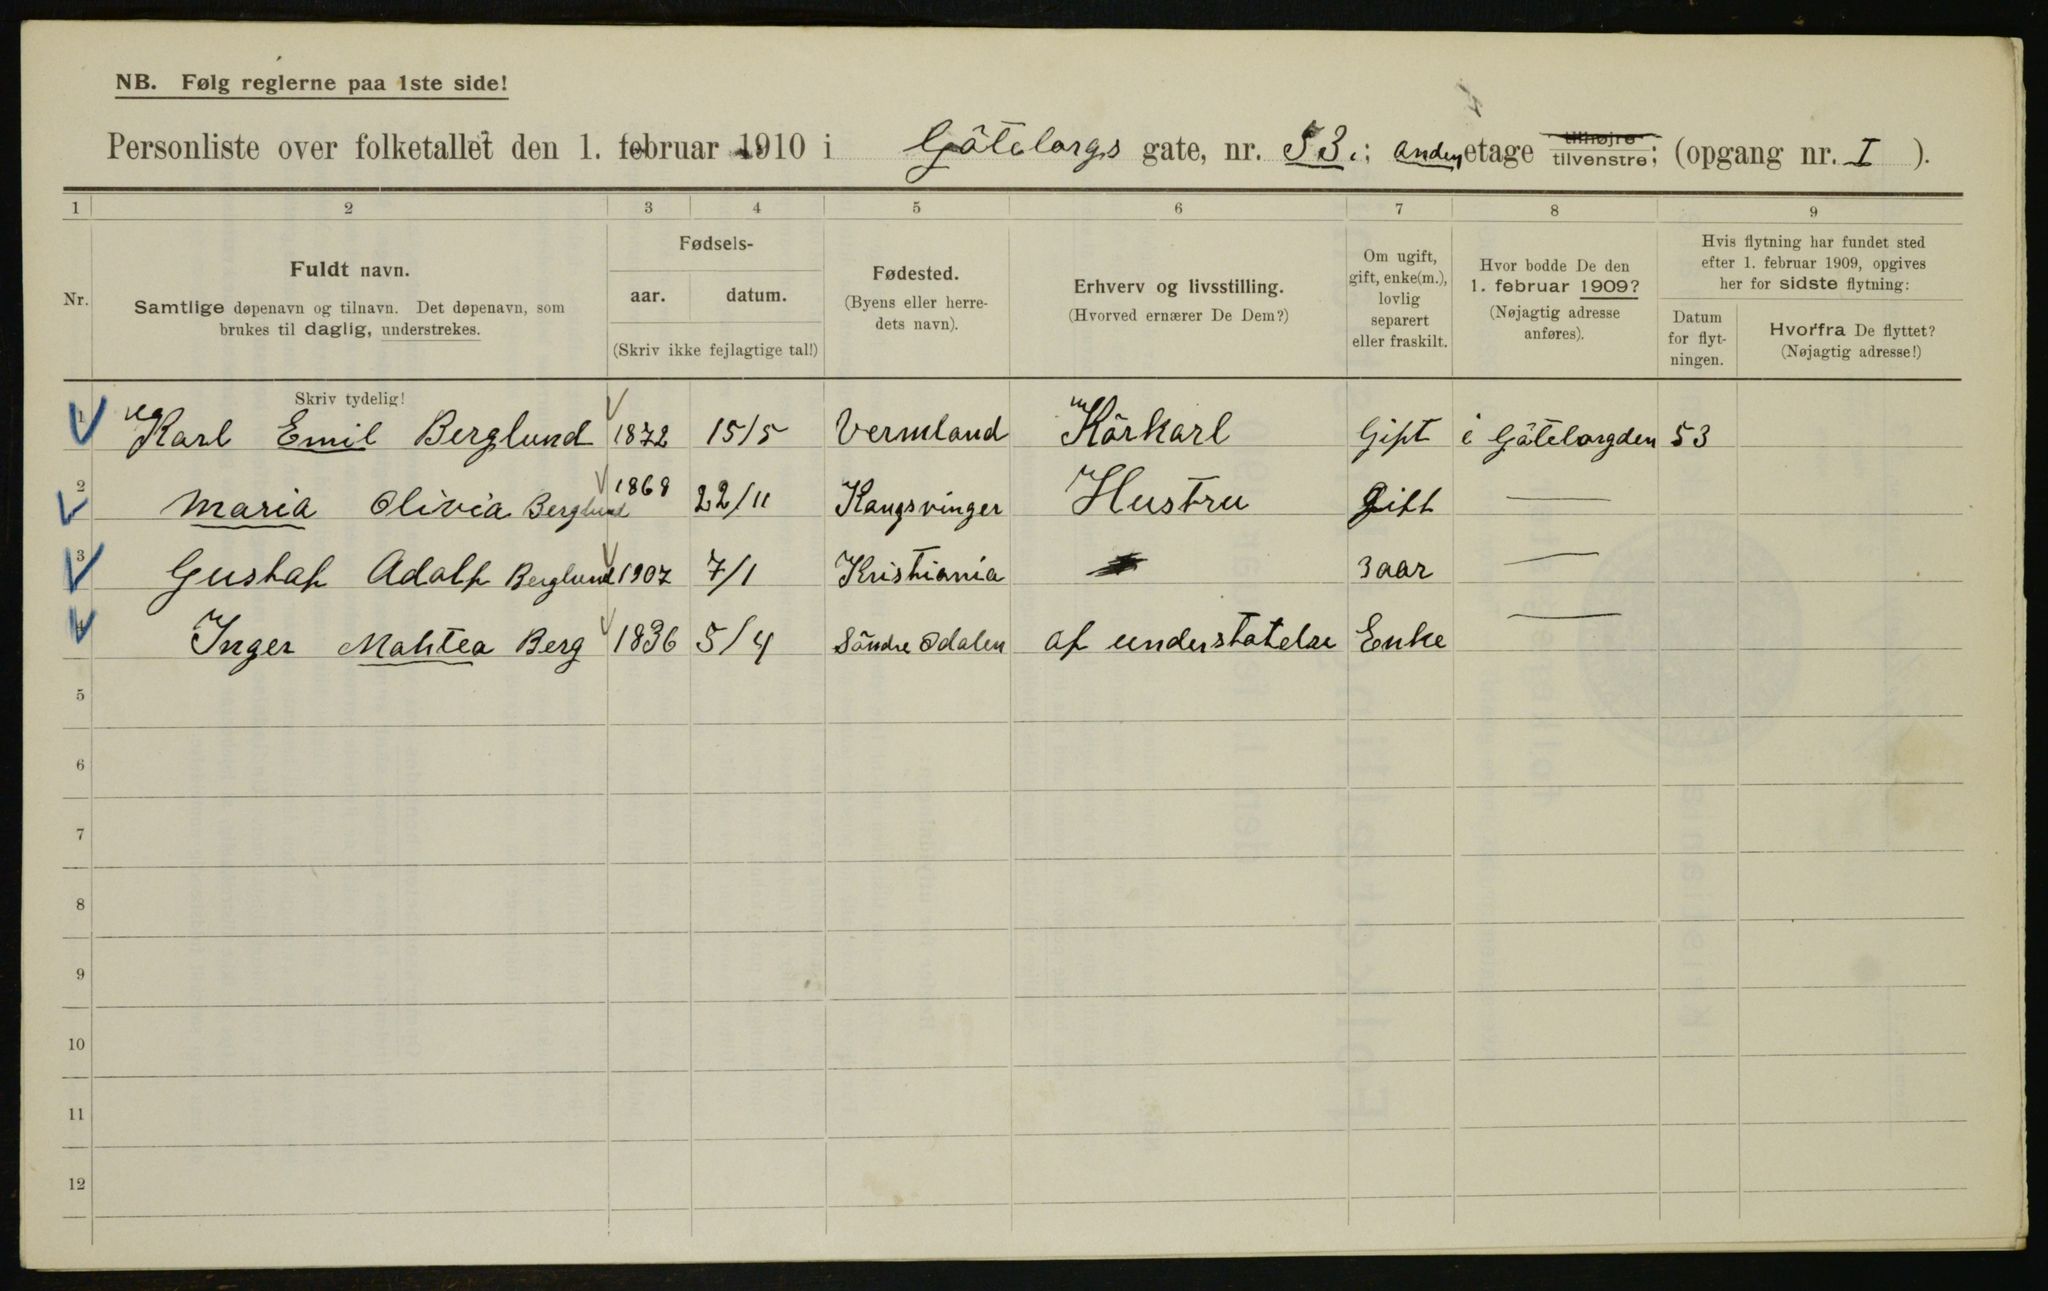 NB. Følg reglerne paa 1ste side!
Personliste over folketallet den 1. februar 1910 i Göteborgs gate, nr. 53.; anden etage tilhøjre tilvenstre; (opgang nr. I ).
1 2 3 4 5 6 7 8 9
Nr.
Fuldt navn.
Samtlige døpenavn og tilnavn. Det døpenavn, som
brukes til daglig, understrekes.
Fødsels-
aar. datum.
(Skriv ikke fejlagtige tal!)
Fødested.
(Byens eller herre-
dets navn).
Erhverv og livsstilling.
(Hvorved ernærer De Dem?)
Om ugift,
gift, enke(m.),
lovlig
separert
eller fraskilt.
Hvor bodde De den
1. februar 1909?
(Nøjagtig adresse
anføres).
Hvis flytning har fundet sted
efter 1. februar 1909, opgives
her for sidste flytning:
Datum
for flyt-
ningen.
Hvorfra De flyttet?
(Nøjagtig adresse!)
Skriv tydelig!
1 Karl Emil Berglund 1872 15/5 Vermland Körkarl Gift i Göteborgden 53
2 Maria Olivia Berglund 1868 22/11 Kongsvinger Hustru Gift —
3 Gustaf Adolf Berglund 1907 7/1 Kristiania 3 aar —
4 Inger Mahtea Berg 1836 5/4 Söndre Odalen af understötelse Enke —
5
6
7
8
9
10
11
12